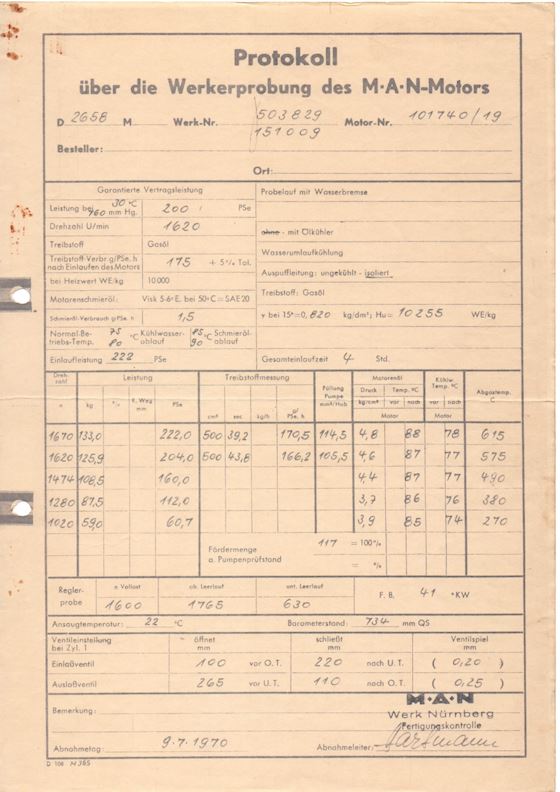 Protokoll
über die Werkerprobung des M·A·N-Motors
D 2658 M Werk-Nr. 503829 Motor-Nr. 101740/19
151009
Besteller:
Ort:
Garantierte Vertragsleistung
Probelauf mit Wasserbremse
Leistung bei 30 °C 960 mm Hg. 200 PSe
Drehzahl U/min 1620
ohne - mit Ölkühler
Treibstoff Gasöl
Wasserumlaufkühlung
Treibstoff-Verbr. g/PSe. h nach Einlaufen des Motors 175 + 5% Tol.
Auspuffleitung: ungekühlt - isoliert
bei Heizwert WE/kg 10 000
Treibstoff: Gasöl
Motorenschmieröl: Visk 5-6° E. bei 50°C = SAE 20
Schmieröl-Verbrauch g/PSe. h 1,5
γ bei 15° = 0, 820 kg/dm³; Hu = 10255 WE/kg
Normal-Betriebs-Temp. 75 80 °C Kühlwasserablauf 85 90 °C Schmierölablauf
Einlaufleistung 222 PSe
Gesamteinlaufzeit 4 Std.
Drehzahl Leistung Treibstoffmessung Füllung Pumpe mm³/Hub Motorenöl Kühlw. Temp. °C Abgastemp. °C
Druck Temp. °C
kg K. Weg mm PSe cm³ sec kg/h g/PSe. h kg/cm² vor nach vor nach
Motor Motor
1670 133,0 222,0 500 39,2 170,5 114,5 4,8 88 78 615
1620 125,9 204,0 500 43,8 166,2 105,5 4,6 87 77 575
1474 108,5 160,0 4,4 87 77 490
1280 87,5 112,0 3,7 86 76 380
1020 59,0 60,7 3,9 85 74 270
Fördermenge a. Pumpenprüfstand 117 = 100 %
= %
Reglerprobe n Vollast ob. Leerlauf unt. Leerlauf
1600 1765 630 F. B. 41 °KW
Ansaugtemperatur: 22 °C Barometerstand: 734 mm QS
Ventileinstellung bei Zyl. 1 öffnet mm schließt mm Ventilspiel mm
Einlaßventil 100 vor O.T. 220 nach U.T. ( 0,20 )
Auslaßventil 265 vor U.T. 110 nach O.T. ( 0,25 )
M·A·N
Bemerkung:
Werk Nürnberg
Fertigungskontrolle
Abnahmetag: 9.7.1970 Abnahmeleiter:
D 106 N 365